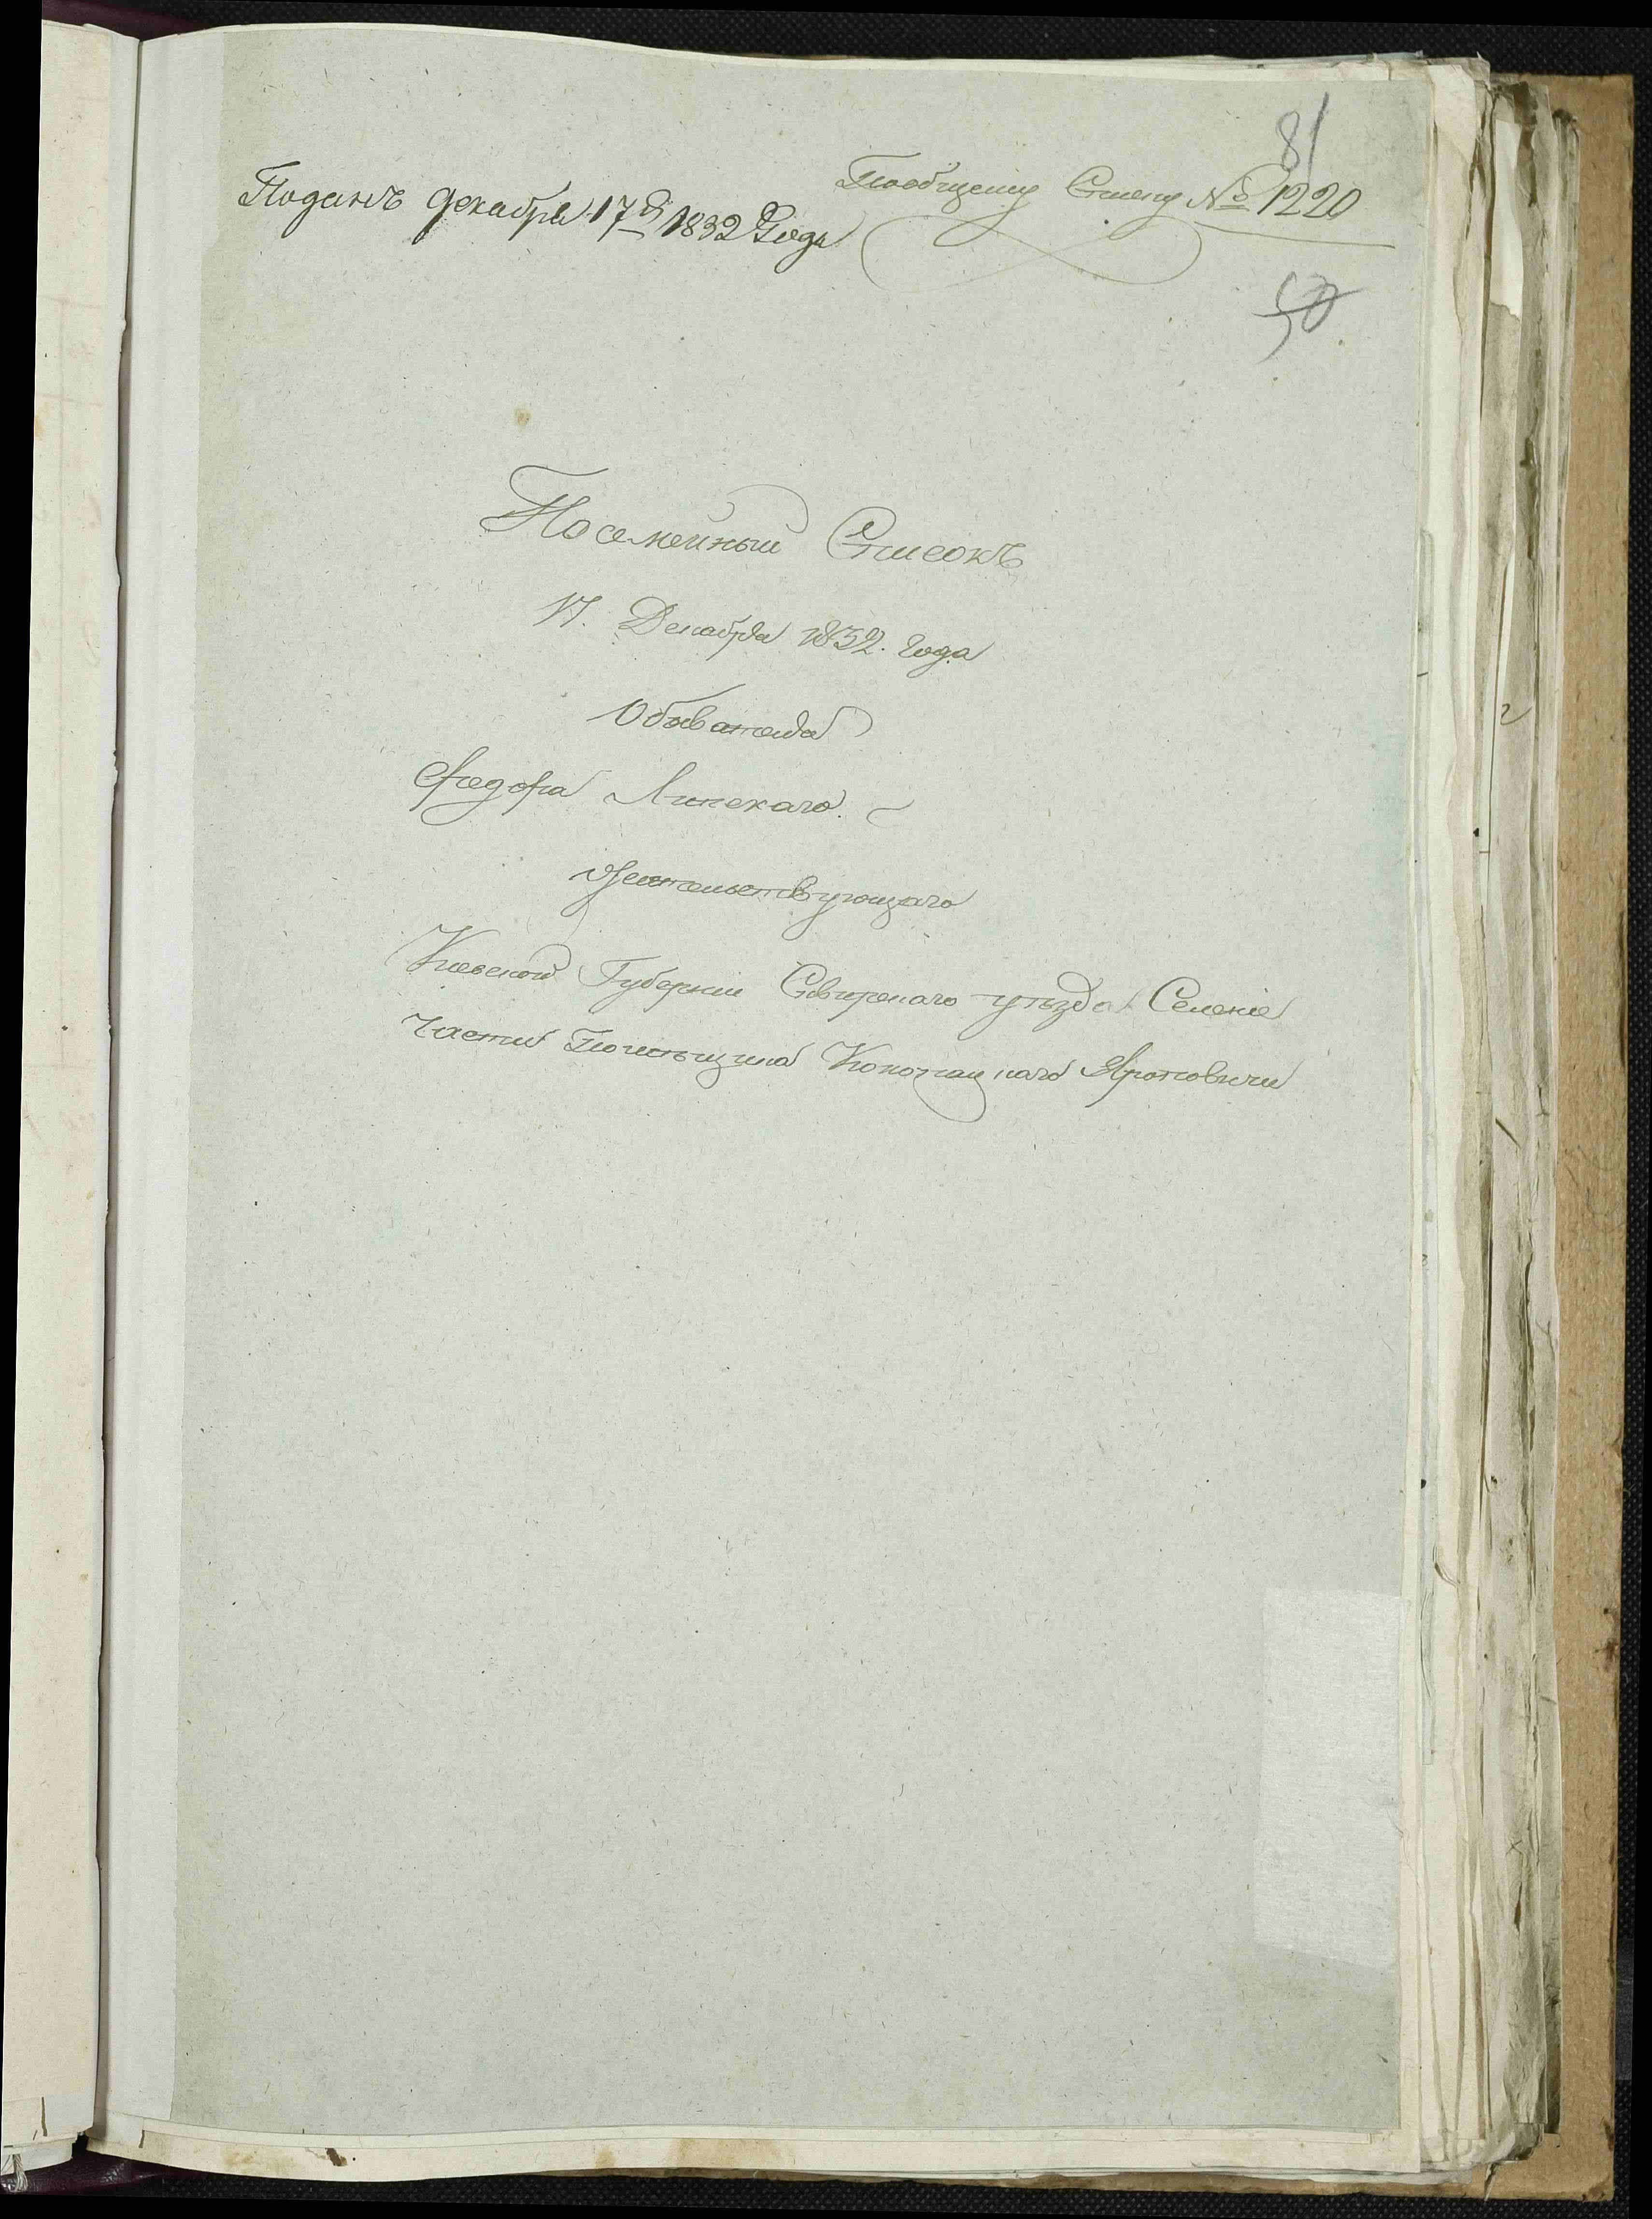 81
Поданъ декабря 17 д 1832 Года
Пообщему Списку № 1220
50
Посемейный Списокъ
17. Декабря 1832. года
Обывателя
Федора Липскаго.
Жительствующаго
Киевской Губернии Сквирскаго уѣзда Селение
Части Помѣщика Яроповичи